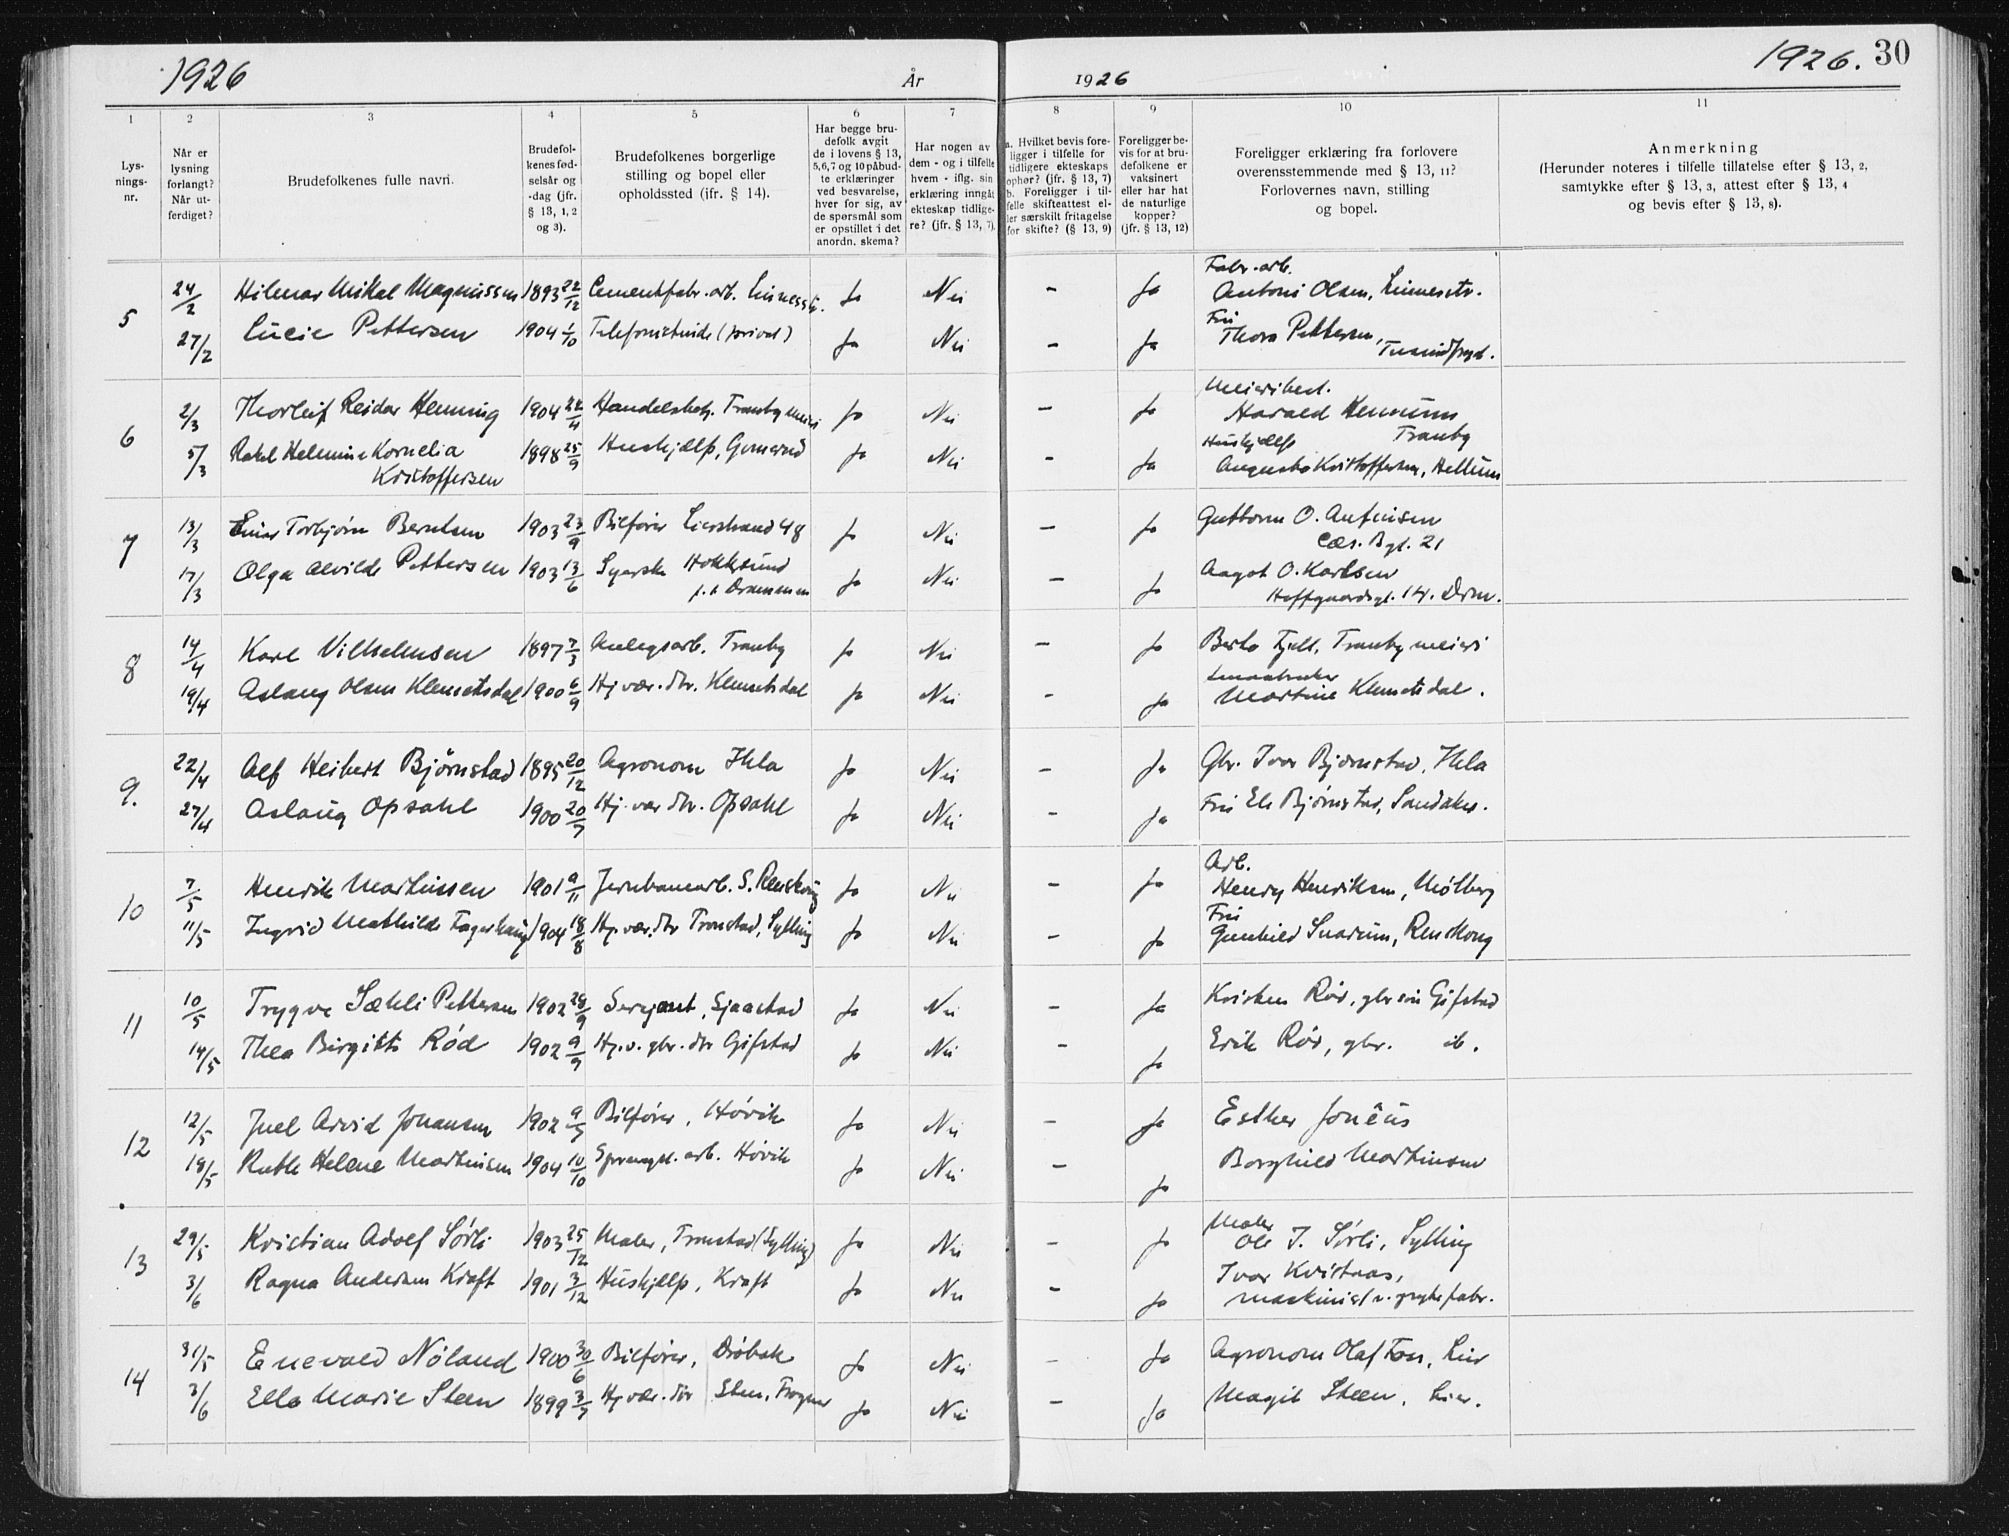 1926
År
1926
1926. 30
1 2 3 4 5 6 7 8 9 10 11
Lys-
nings-
nr.
Når er
lysning
forlangt?
Når ut-
ferdiget?
Brudefolkenes fulle navn.
Brudefol-
kenes fød-
selsår og
-dag (jfr.
§ 13, 1, 2
og 3).
Brudefolkenes borgerlige
stilling og bopel eller
opholdssted (ifr. § 14).
Har begge bru-
defolk avgit
de i lovens § 13,
5,6,7 og 10 påbud-
te erklæringer
ved besvarelse,
hver for sig, av
de spørsmål som
er opstillet i det
anordn. skema?
Har nogen av
dem - og i tilfelle
hvem - iflg. sin
erklæring inngåt
ekteskap tidlige-
re? (jfr. § 13, 7).
a. Hvilket bevis fore-
ligger i tilfelle for
tidligere ekteskaps
ophør? (jfr. § 13, 7)
b. Foreligger i til-
felle skifteattest el-
ler særskilt fritagelse
for skifte? (§ 13, 9)
Foreligger be-
vis for at bru-
defolkene er
vaksinert
eller har hat
de naturlige
kopper?
(jfr. § 13, 12)
Foreligger erklæring fra forlovere
overensstemmende med § 13, 11?
Forlovernes navn, stilling
og bopel.
Anmerkning
(Herunder noteres i tilfelle tillatelse efter § 13, 2,
samtykke efter § 13, 3, attest efter § 13, 4
og bevis efter § 13, 8).
Fabr. arb.
5 24/2 Hilmar Mikal Magnussen 1893 22/12 Cementfabr. arb. Linnesstr. Ja Nei - Ja Antoni Olsen, Linnesstr.
Fru
27/2 Lucie Pettersen 1904 1/10 Telefonistinde (privat) Ja Nei - Ja Thora Pettersen, Tusindfryd.
Meieribest.
6 2/3 Thorleif Reidar Henning 1904 Handelsbetj. Tranby meieri Ja Nei - Ja Harald Hennum
Tranby
Huskjælp
5/3 Rakel Helmine Kornelia 1898 25/9 Huskjælp, Ja Nei - Ja Augusta Kristoffersen, Hellum
Kristoffersen
7 13/3 Einar Torbjørn Berntsen 1903 23/9 Bilfører Lierstrand 48 Ja Nei - Ja Guttorm O. Anfinsen
Cæs. Bgt. 21
17/3 Olga Alvilde Pettersen 1903 13/6 Syerske Hokksund Ja Nei - Ja Aagot O. Karlsen
p.t. Drammen
Hoffgaardsgt. 14. Drm.
8 14/4 Karl Vilhelmsen 1897 7/3 Anlegsarb. Tranby Ja Nei - Ja Berta Fjell, Tranby meieri
Smaabruker
19/4 Aslaug Olsen Klemetsdal 1900 6/9 Hj. vær. dtr. Klemetsdal Ja Nei - Ja Martine Klemetsdal.
9. 22/4 Alf Heibert Bjørnstad 1895 20/12 Agronom Ihla Ja Nei - Ja Gbr. Ivar Bjørnstad, Ihla
27/4 Aslaug Opsahl 1900 20/7 Hj. vær dtr. Opsahl Ja Nei - Ja Fru Els Bjørnstad, Sandaker.
Arb.
10 7/5 Henrik Martinsen 1901 9/11 Jernbanearb. S. Renskoug Ja Nei - Ja Henry Henriksen, Mølberg
Fru
11/5 Ingrid Mathilde Fagerhaug 1904 18/8 Hj. vær. dtr Tronstad, Sylling Ja Nei - Ja Gunhild Snarum, Renskoug
11 10/5 Trygve Sæhli Pettersen 1902 28/9 Sersjant, Sjaastad Ja Nei - Ja Kristen Rød, gbr søn Gifstad
14/5 Thea Birgitte Rød 1902 9/9 Hj. v. gbr. dtr Gifstad Ja Nei - Ja Erik Rød, gbr. ib.
12 12/5 Juel Arvid Johansen 1902 9/7 Bilfører, Høvik Ja Nei - Ja Esther Jonëus
18/5 Ruth Helene Martinsen 1904 10/10 Sprængst. arb. Høvik Ja Nei - Ja Borghild Martinsen
Maler
13 29/5 Kristian Adolf Sørli 1903 25/12 Maler, Tronstad (Sylling) Ja Nei - Ja Ole J. Sørli, Sylling
3/6 Ragna Andersen Kraft 1901 3/12 Huskjælp, Kraft Ja Nei - Ja Ivar Kvistaas,
maskinist v. fabr.
14 31/5 Enevald Nøland 1900 30/6 Bilfører, Drøbak Ja Nei - Ja Agronom Olaf Foss, Lier
3/6 Ella Marie Steen 1899 3/7 Hj. vær. dtr Steen, Frogner Ja Nei - Ja Magit Steen, Lier.